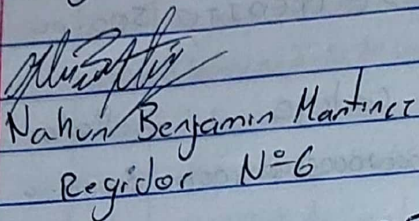 Nahun Benjamin Martinez
Regidor Nº6